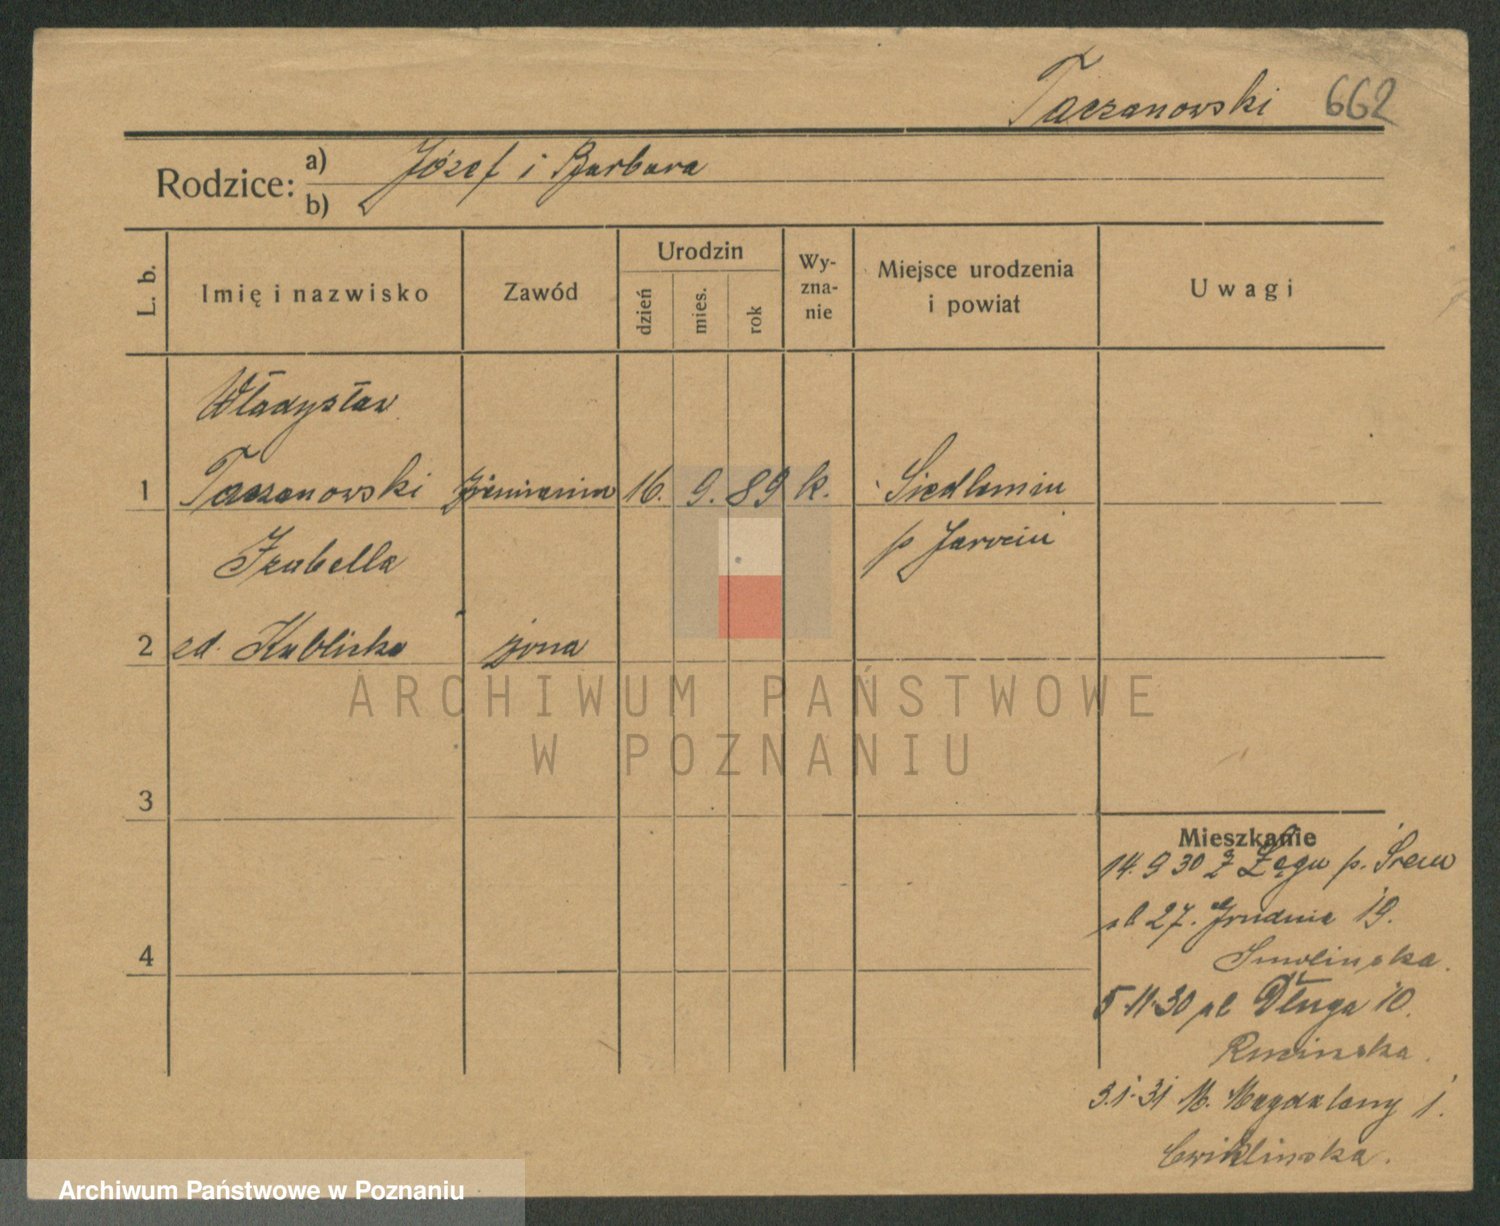 Taczanowski 662
Rodzice: a) Józef i Barbara
b)
L. b.
Imię i nazwisko
Zawód
Urodzin
dzień
mies.
rok
Wy-
zna-
nie
Miejsce urodzenia
i powiat
Uwagi
Władysław
1 Taczanowski ziemianin 16. 9. 89 k. Siedlemin
Izabella p Jarocin
2 zd. Kublicka żona
3
4
Mieszkanie
14. 9 30 z Łęgu p. Śrem
pl 27. Grudnia 19.
Smolińska.
5-11-30 pl Długa 10.
3.1-31 M. Magdaleny 1.
Cwiklinska.
ARCHIWUM PAŃSTWOWE
W POZNANIU
Archiwum Państwowe w Poznaniu